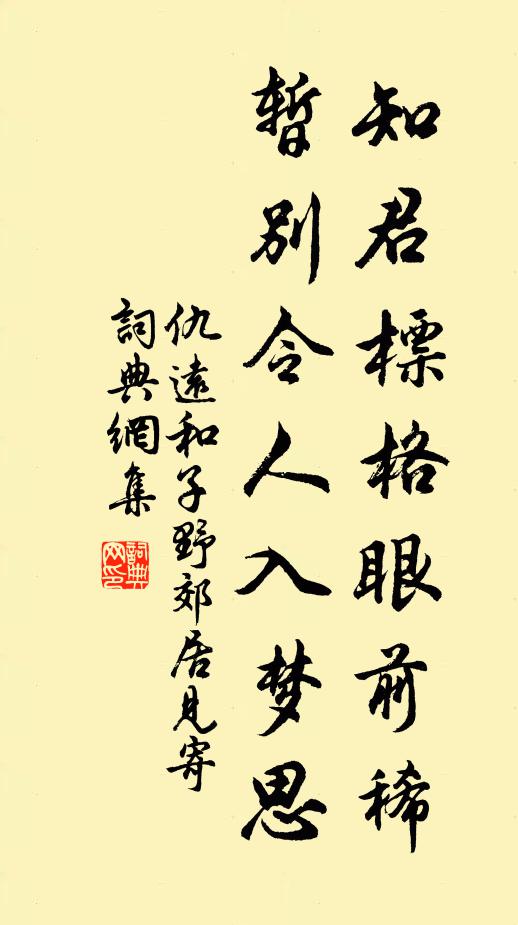 知君標格眼前稀
暫别令人入梦思
仇遠和子野郊居見寄
詞典網集
詞典网印